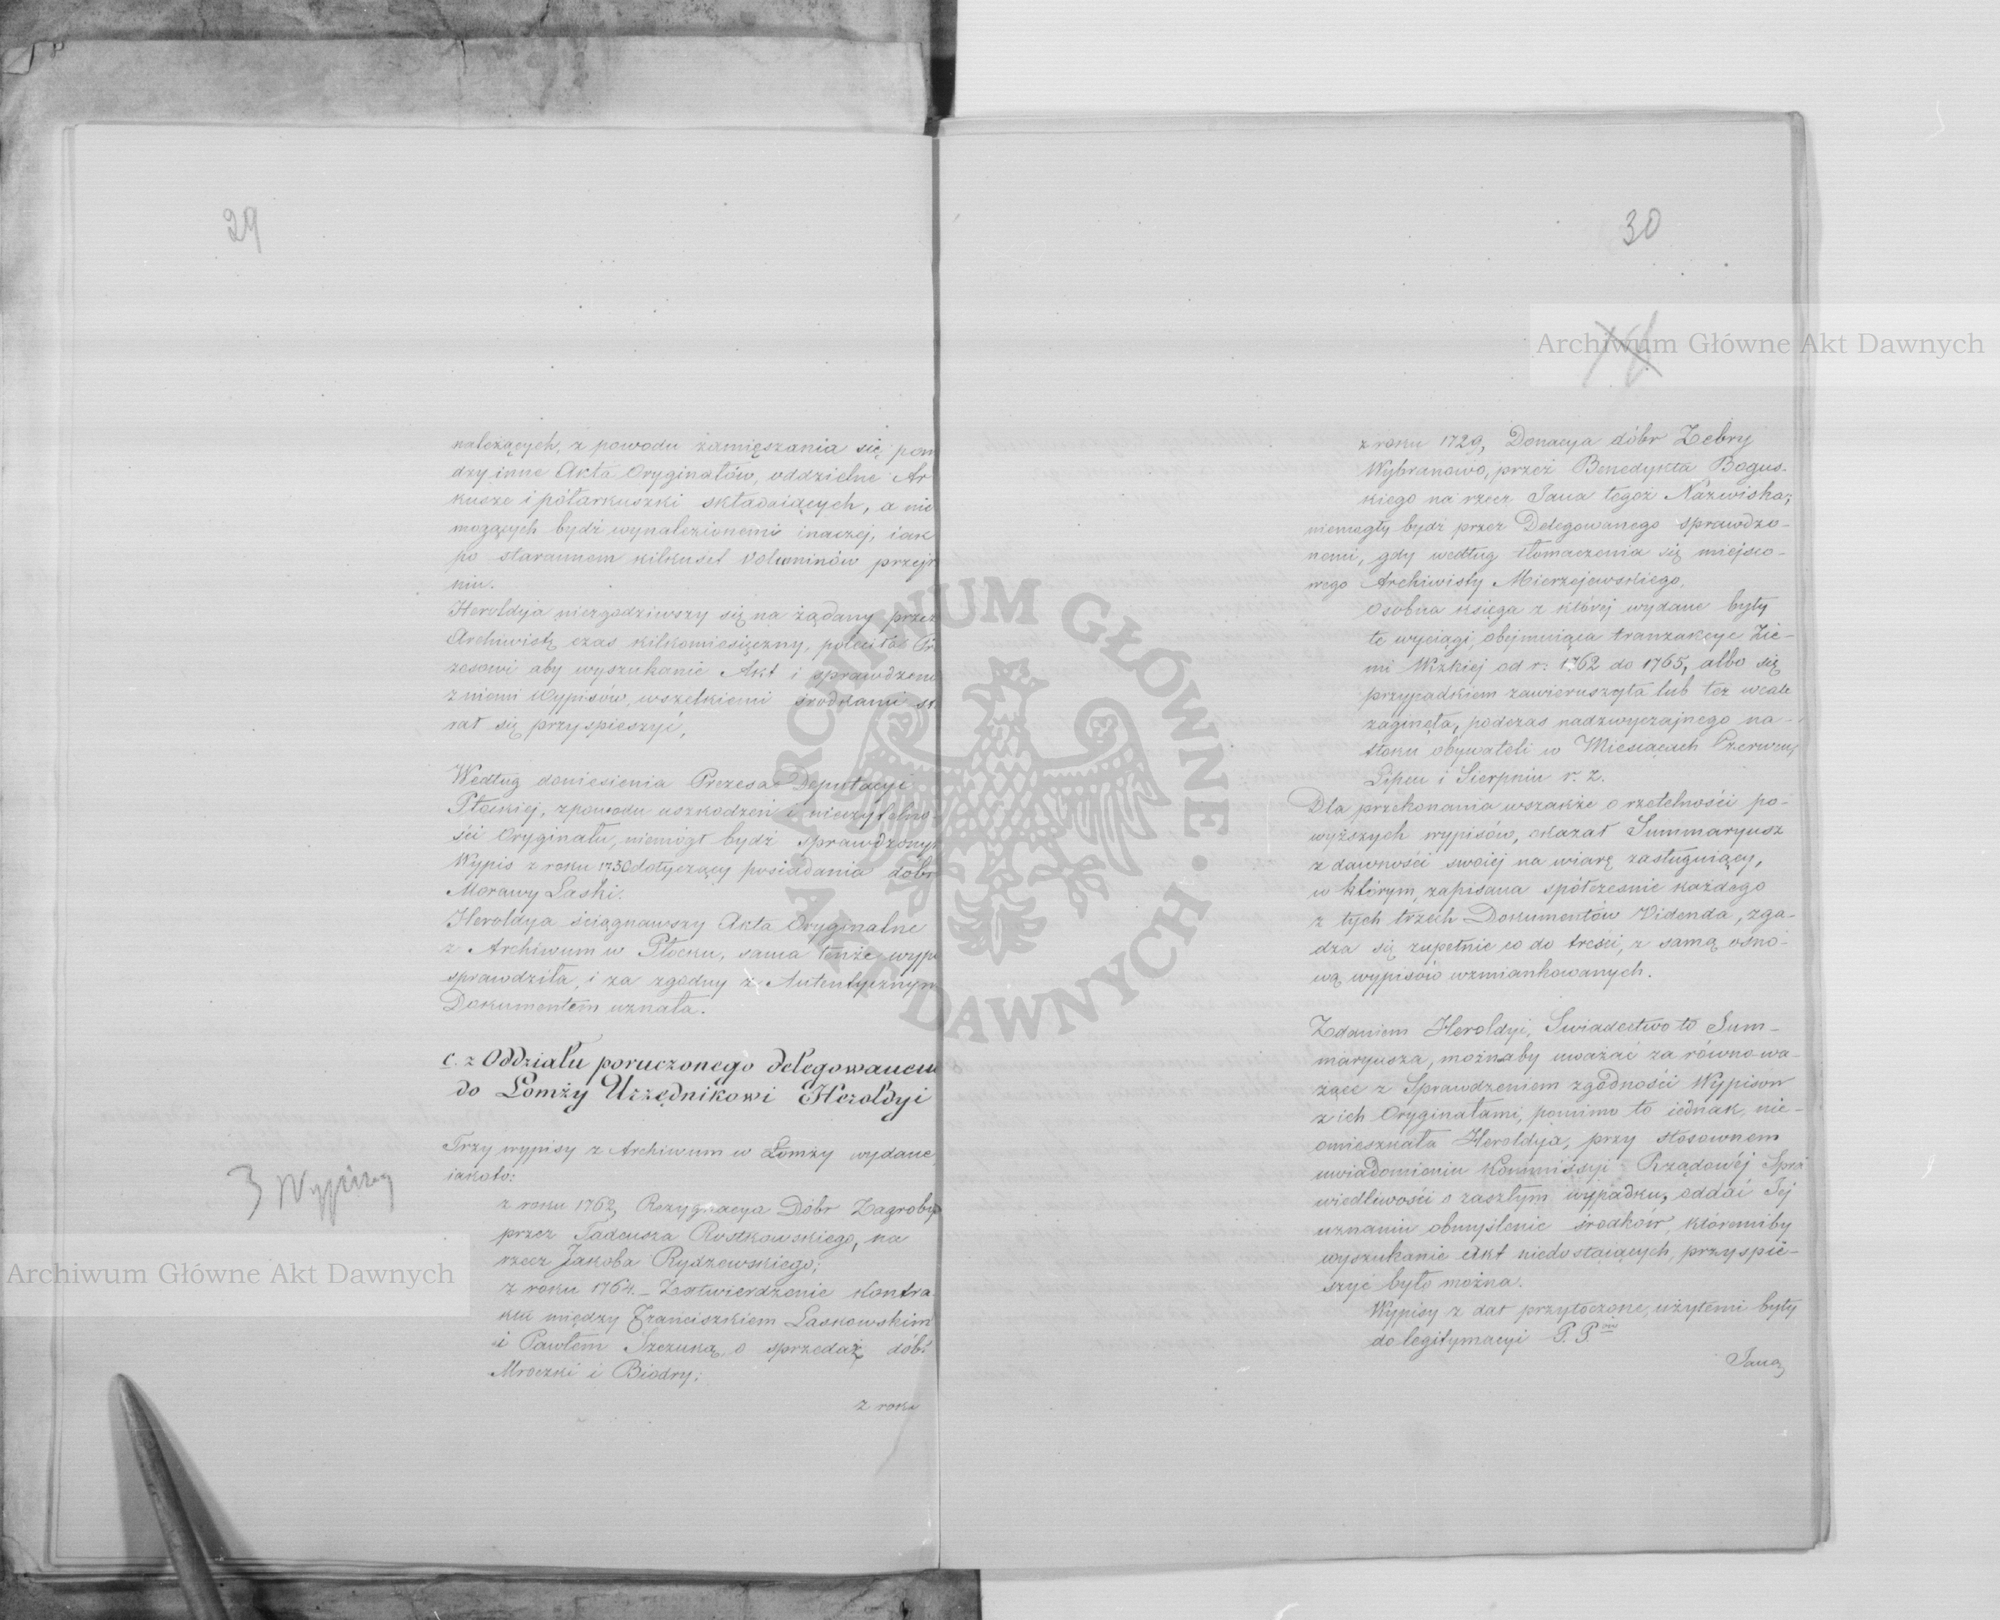 29
należących, z powodu zamięszania się pom
dzy inne Akta Oryginałów, oddzielne Ar
kusze i półarkuszki składaiących, a nie
mogących bydź wynalezionemi inaczej, iak
po starannem kilkuset Voluminów przejr
niu.
Heroldyja niezgodziwszy się na żądany przez
Archiwistę czas kilkomiesięczny, poleciła Pr
zesowi aby wyszukanie Akt i sprawdzenie
z niemi Wypisów, wszelkiemi środkami st
rał się przyspieszyć,
Według doniesienia Prezesa Deputacyi
Płockiej, z powodu uszkodzeń i nieczytelno-
ści Oryginału, niemógł bydź sprawdzony
Wypis z roku 1730 dotyczący posiadania dóbr
Morawy Laski.
Heroldya ściągnąwszy Akta Oryginalne
z Archiwum w Płocku, sama tenże wypi
sprawdziła, i za zgodny z Autentycznym
Dokumentem uznała.
c. z Oddziału poruczonego delegowanemu
do Lomży Urzędnikowi Heroldyi
3 Wypisy
Trzy wypisy z Archiwum w Łomży wydane,
iakoto:
z roku 1762, Rezygnacya Dóbr Zagroby
przez Tadeusza Rostkowskiego, na
rzecz Jakóba Rydzewskiego;
z roku 1764. – Zatwierdzenie Kontra
ktu między Franciszkiem Laskowskim
i Pawłem Szczuką, o sprzedaż dóbr
Mroczki i Biodry;
z roku
30
z roku 1729, Donacya dóbr Zebry
Wybranowo, przez Benedykta Bogus-
kiego na rzecz Jana tegoż Nazwiska;
niemogły bydź przez Delegowanego sprawdzo-
nemi, gdy według tłomaczenia się miejsco-
wego Archiwisty Mierzejewskiego,
Osobna księga z której wydane były
te wyciągi, obejmuiąca tranzakcye Zie-
mi Wizkiej od r: 1762 do 1765, albo się
przypadkiem zawieruszyła lub też wcale
zaginęła, podczas nadzwyczajnego na-
tłoku obywateli w Miesiącach Czerwcu,
Lipcu i Sierpniu r. z.
Dla przekonania wszakże o rzetelności po-
wyższych wypisów, okazał Summaryusz
z dawności swoiej na wiarę zasługuiący,
w którym zapisana spółcześnie każdego
z tych trzech Dokumentów Videnda, zga-
dza się zupełnie co do treści, z samą osno-
wą wypisów wzmiankowanych.
Zdaniem Heroldyi, Swiadectwo to Sum-
maryusza, możnaby uważać za równowa-
żące z Sprawdzeniem zgodności Wypisów
z ich Oryginałami, pomimo to iednak, nie-
omieszkała Heroldyja, przy stosownem
uwiadomieniu Kommissyi Rządowéj Spra
wiedliwości o zaszłym wypadku, oddać Jej
uznaniu obmyślenie środków, któremiby
wyszukanie Akt niedostaiących, przyspie-
szyć było można.
Wypisy z dat przytoczone, użytemi były
do legitymacyi P. P.
Jana
Archiwum Główne Akt Dawnych
Archiwum Główne Akt Dawnych
ARCHIWUM GŁÓWNE
AKT DAWNYCH